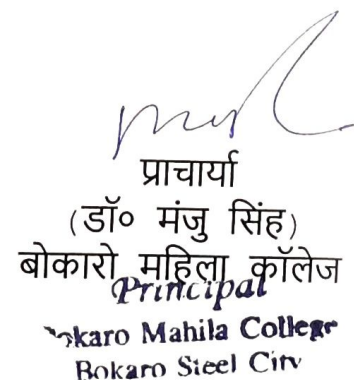 प्राचार्या
(डॉ० मंजु सिंह)
बोकारो महिला कॉलेज
Principal
Bokaro Mahila College
Bokaro Steel City